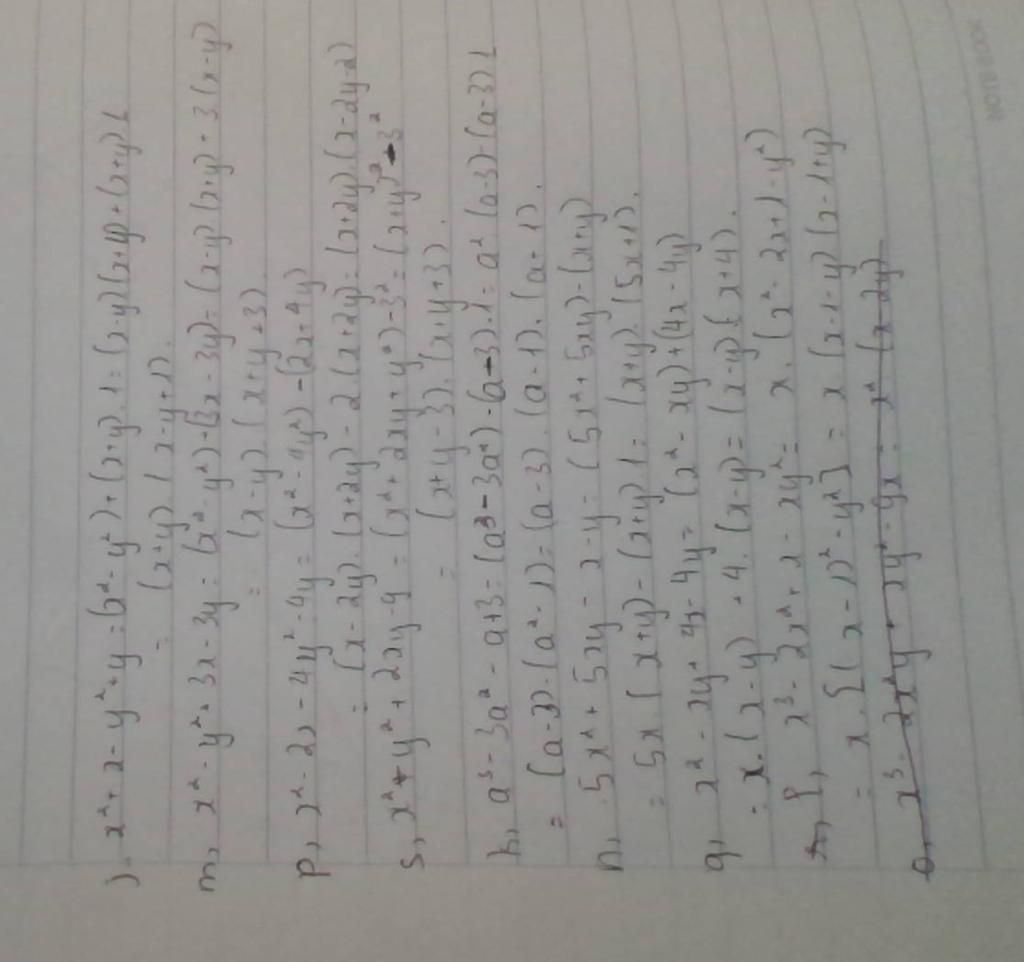 ), x² + x - y² + y = (x² - y²) + (x+y).1 = (x-y)(x+y) + (x+y)1
= (x+y).(x-y+1).
m, x² - y² + 3x - 3y = (x² - y²) + (3x - 3y) = (x-y)(x+y) + 3(x-y)
= (x-y).(x+y+3)
p, x² - 2x - 4y² - 4y = (x² - 4y²) - (2x + 4y)
= (x-2y).(x+2y) - 2.(x+2y) = (x+2y).(x-2y-2)
s, x² + y² + 2xy - 9 = (x² + 2xy + y²) - 3² = (x+y)² - 3²
= (x+y-3).(x+y+3).
h, a³ - 3a² - a + 3 = (a³ - 3a²) - (a-3).1 = a²(a-3) - (a-3)1
= (a-3).(a²-1) = (a-3).(a-1).(a+1).
n, 5x² + 5xy - x - y = (5x² + 5xy) - (x+y)
= 5x.(x+y) - (x+y)1 = (x+y).(5x+1).
q, x² - xy + 4x - 4y = (x² - xy) + (4x - 4y)
= x.(x-y) + 4.(x-y) = (x-y).(x+4).
f, x³ - 2x² + x - xy² = x.(x² - 2x + 1 - y²)
= x.[(x-1)² - y²] = x.(x-1-y)(x-1+y)
x³ - 2x²y + xy² - 9x = x² (x-2y)
NOTE BOOK